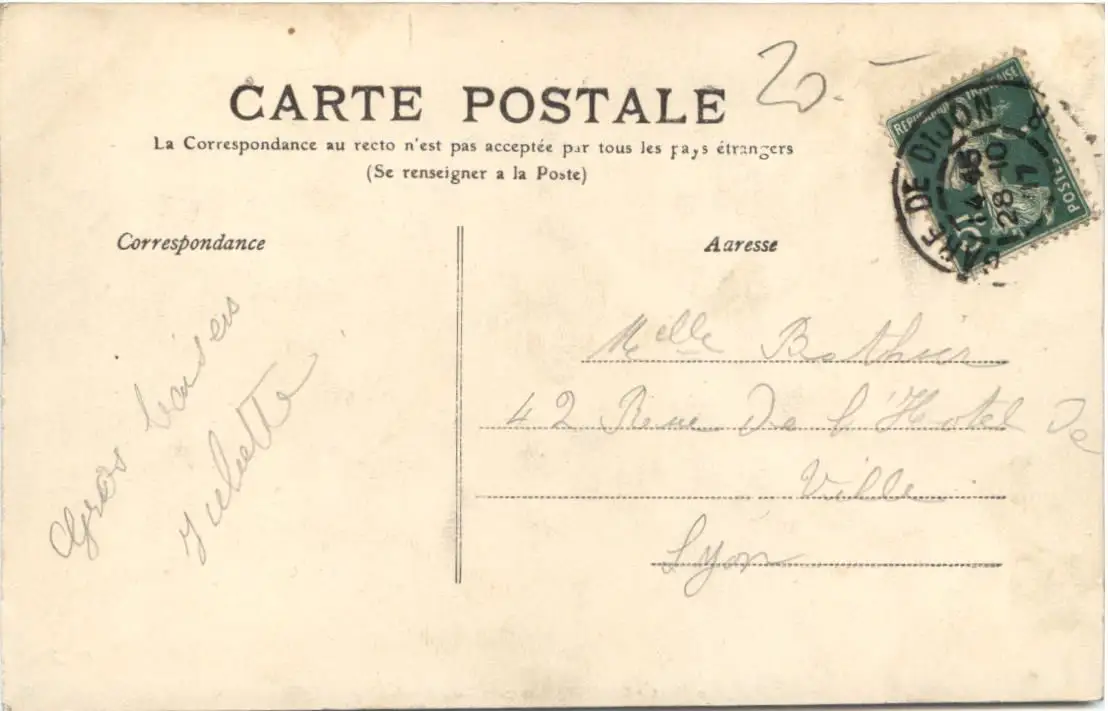 CARTE POSTALE
20.-
La Correspondance au recto n'est pas acceptée par tous les pays étrangers
(Se renseigner a la Poste)
REPUBLIQUE FRANÇAISE
POSTES
GARE DE DIJON
14 45
28-10
Correspondance
Adresse
Gros baisers
Juliette
Melle
42 Rue De l'Hotel De
Ville
Lyon